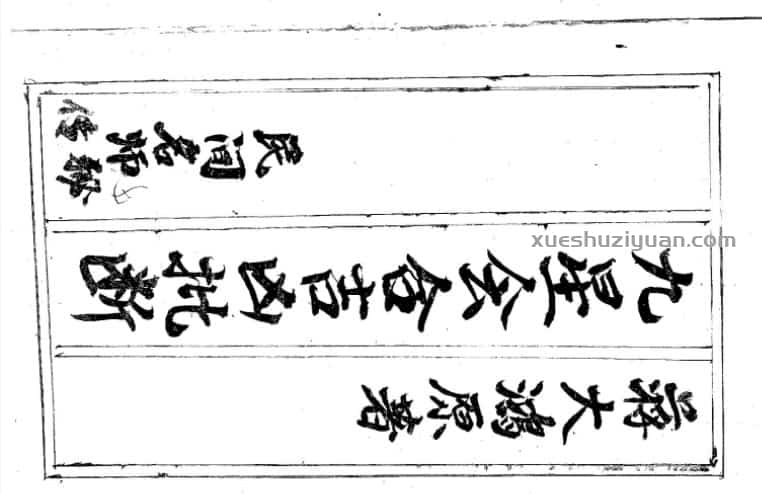 蒋大鸿原著
九星会合吉凶批断
民间名师秘传
xueshuziyuan.com